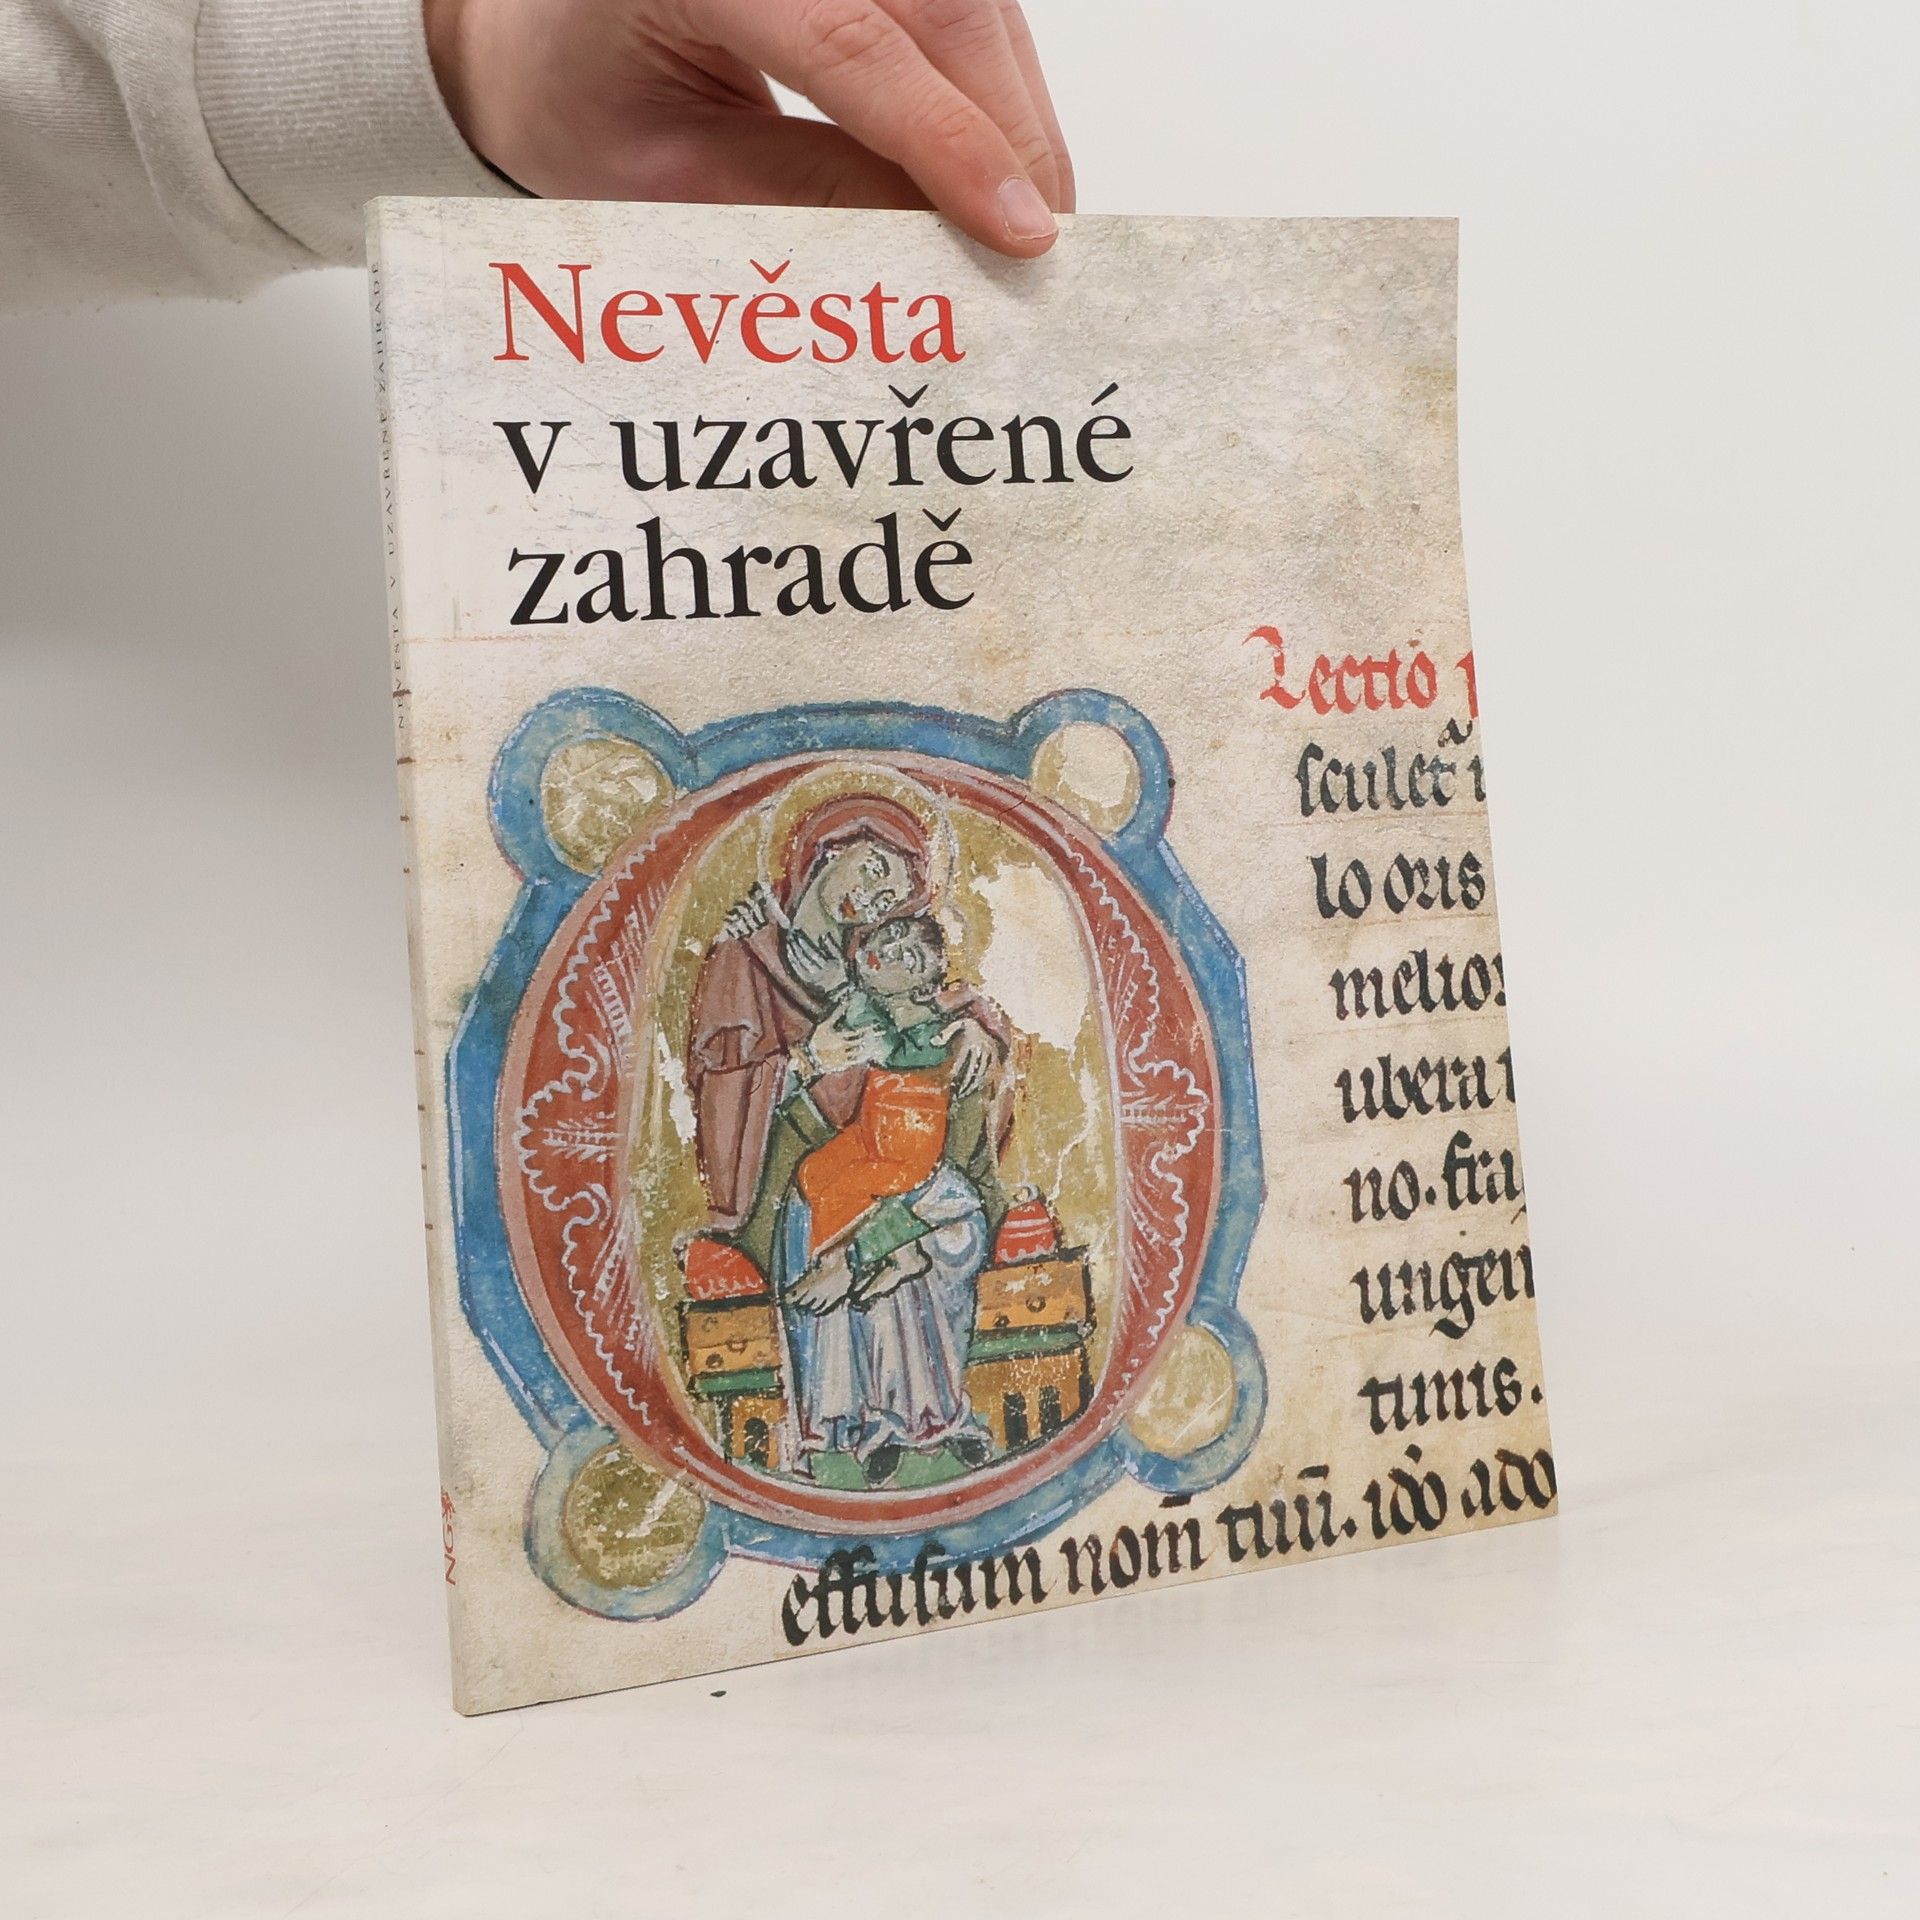 Nevěsta
v uzavřené
zahradě
NEVĚSTA V UZAVŘENÉ ZAHRADĚ
Lectio p
sculet̄ ᷓ
lo oris
melior
ubera t
no. fra
ungen
timis.
effusum nom̄ tuū. ido ado